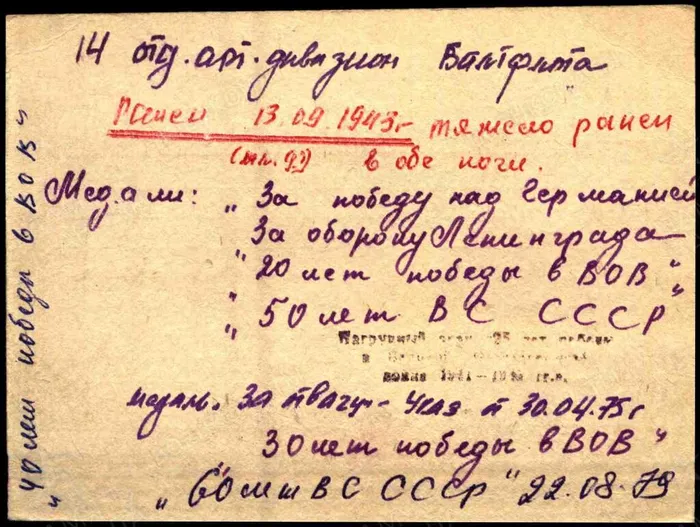 14 отд. арт. дивизион Балтфлота
Ранен 13.09.1943г тяжело ранен
в обе ноги.
Медали: „За победу над Германией
„За оборону Ленинграда
„20 лет победы в ВОВ"
„50 лет ВС СССР"
Нагрудный знак „25 лет победы
в Великой Отечественной
войне 1941–1945 гг.
медаль. За отвагу - Указ от 30.04.75г
„30 лет победы в ВОВ"
„60 лет ВС СССР" 22.08.79
„40 лет победы в ВОВ"